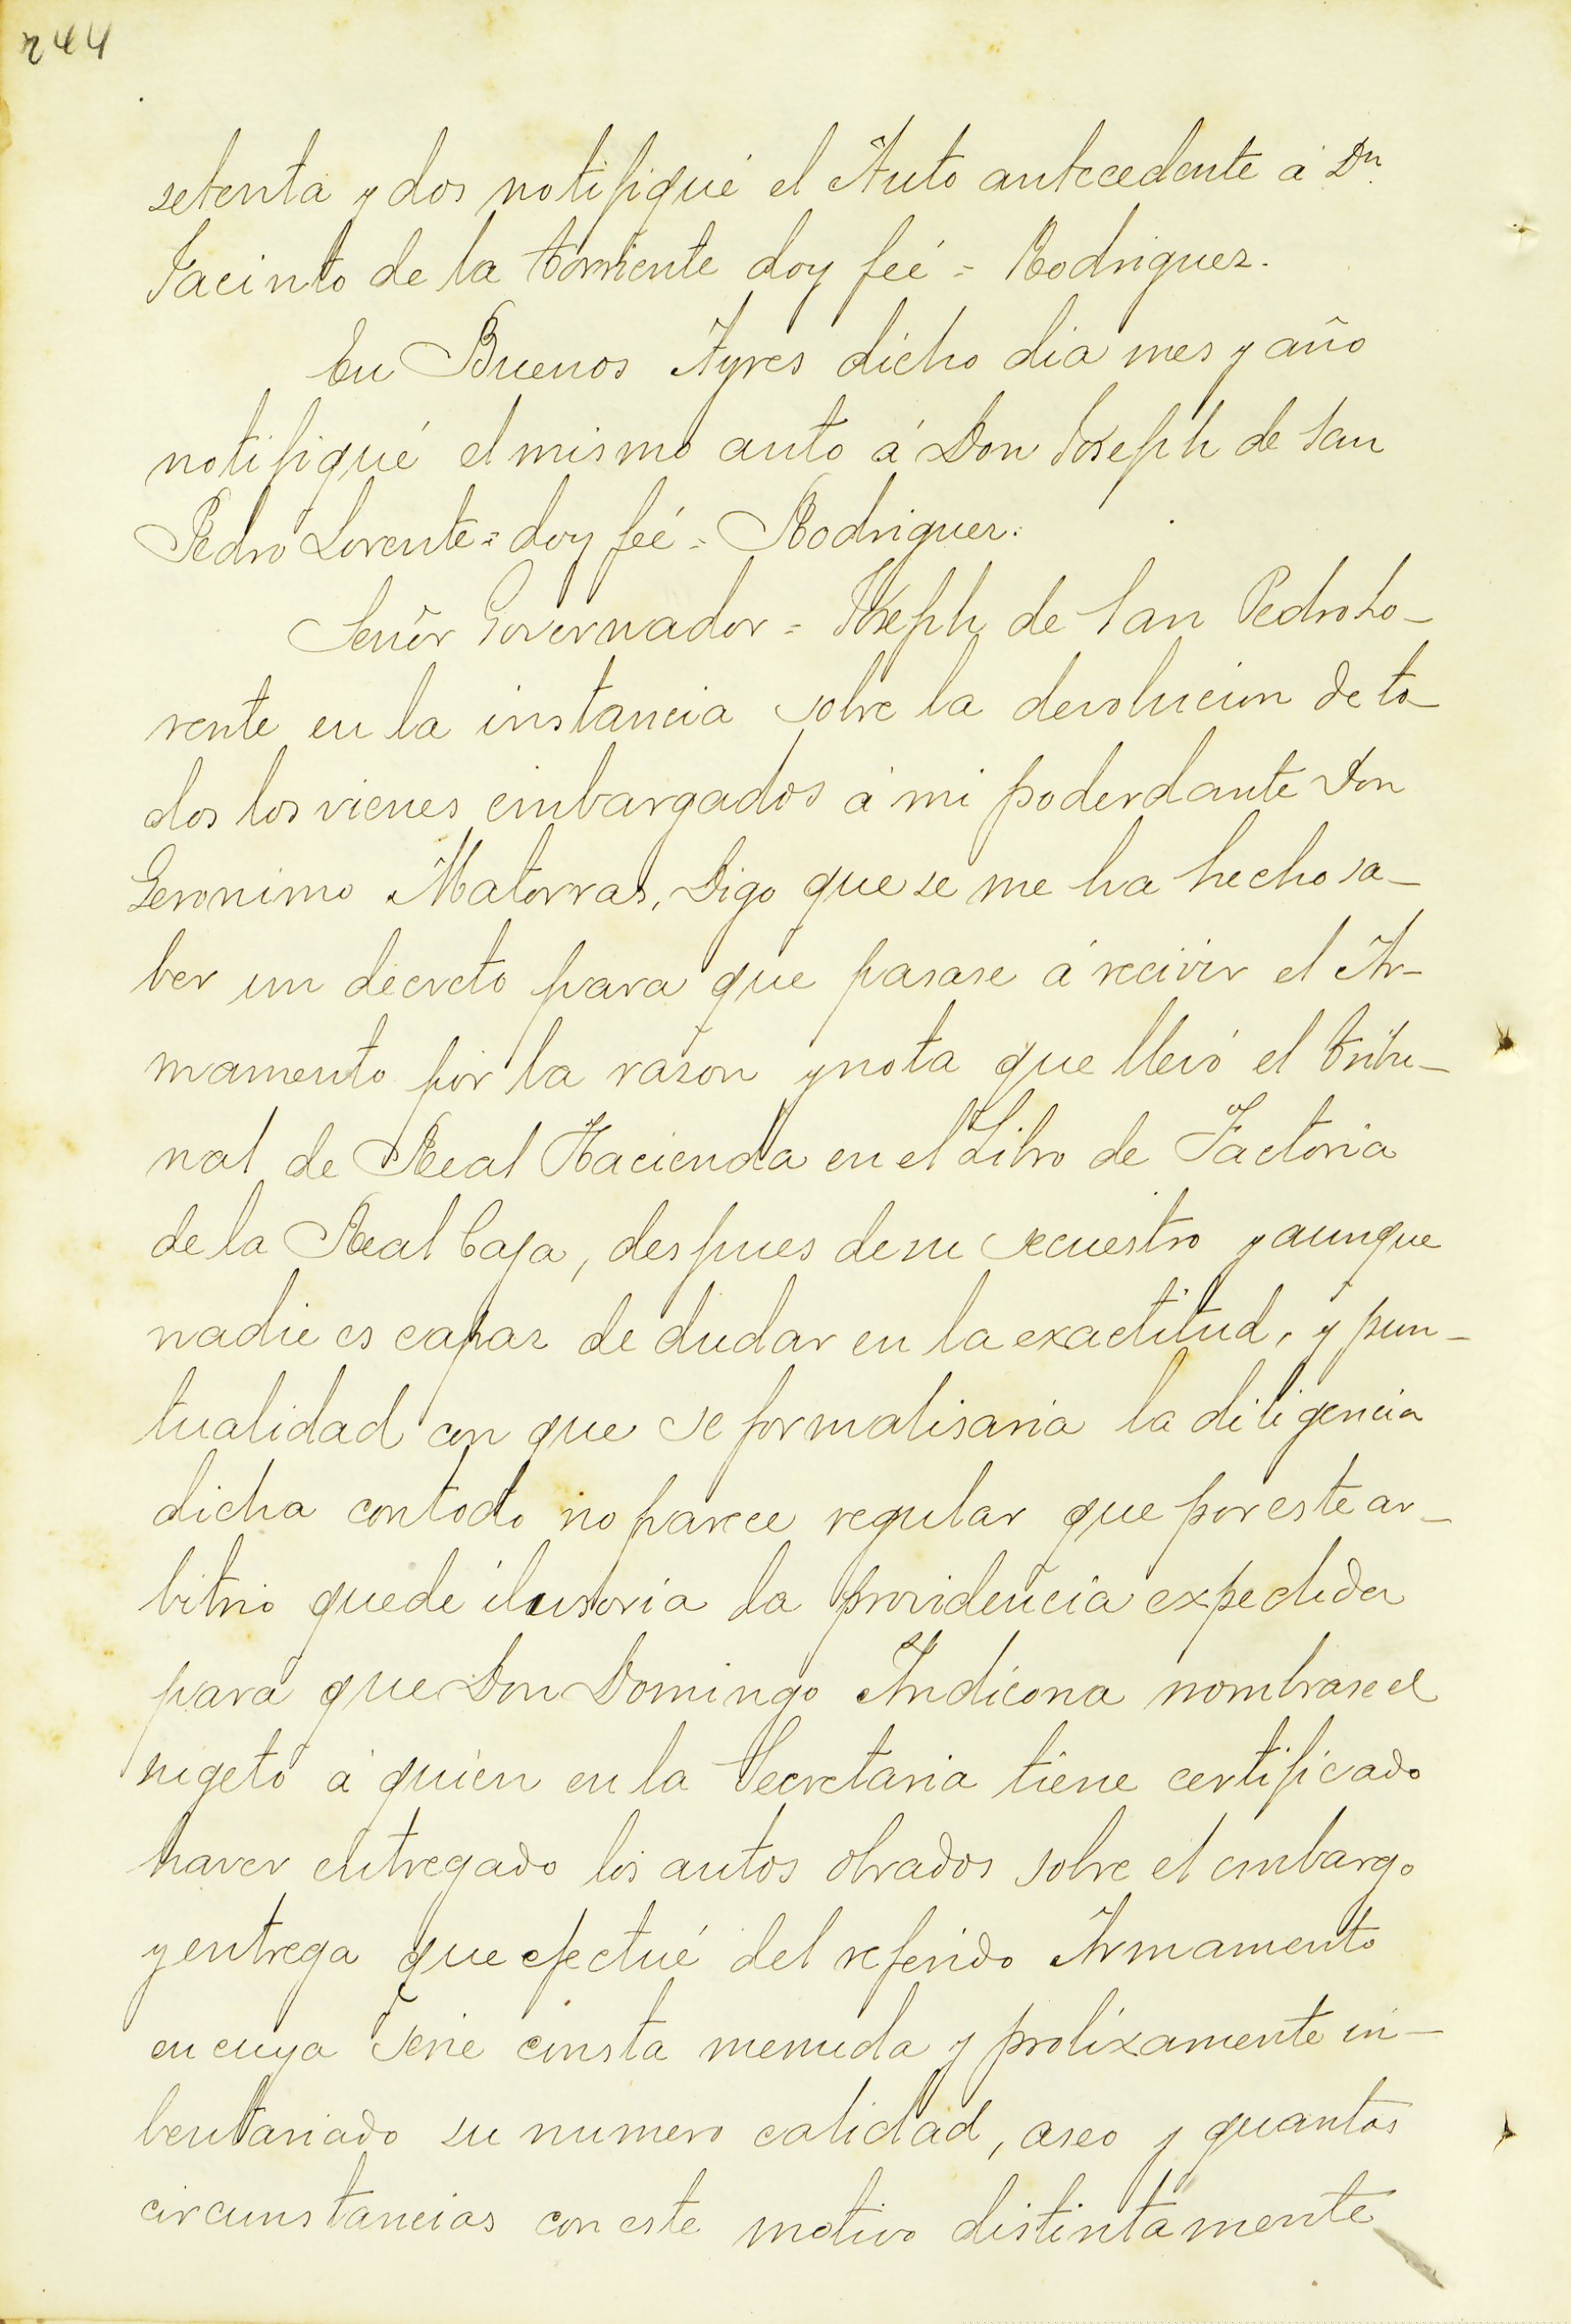 244
setenta y dos notifiqué el Auto antecedente á Dn.
Jacinto de la Torriente doy feé = Rodriguez.
En Buenos Ayres dicho dia mes y año
notifiqué el mismo auto á Don Joseph de San
Pedro Lorente = doy feé = Rodriguez.
Señor Governador = Joseph de San Pedro Lo-
rente en la instancia sobre la devolucion de to-
dos los vienes embargados á mi poderdante Don
Geronimo Matorras, Digo que se me ha hecho sa-
ber un decreto para que pasase á recivir el Ar-
mamento por la rason y nota que llevó el tribu-
nal de Real Hacienda en el Libro de Factoria
de la Real Caja, despues de su secuestro y aunque
nadie es capaz de dudar en la exactitud, y pun-
tualidad con que se formalisaria la diligencia
dicha con todo no parece regular que por este ar-
bitrio quede ilusoria la providencia expedida
para que Don Domingo Indicona nombrase el
sugeto á quien en la Secretaria tiene certificado
haver entregado los autos obrados sobre el embargo
y entrega que efectué del referido Armamento
en cuya serie consta menuda y prolixamente in-
bentariado su numero calidad, aseo y quantas
circunstancias con este motivo distintamente